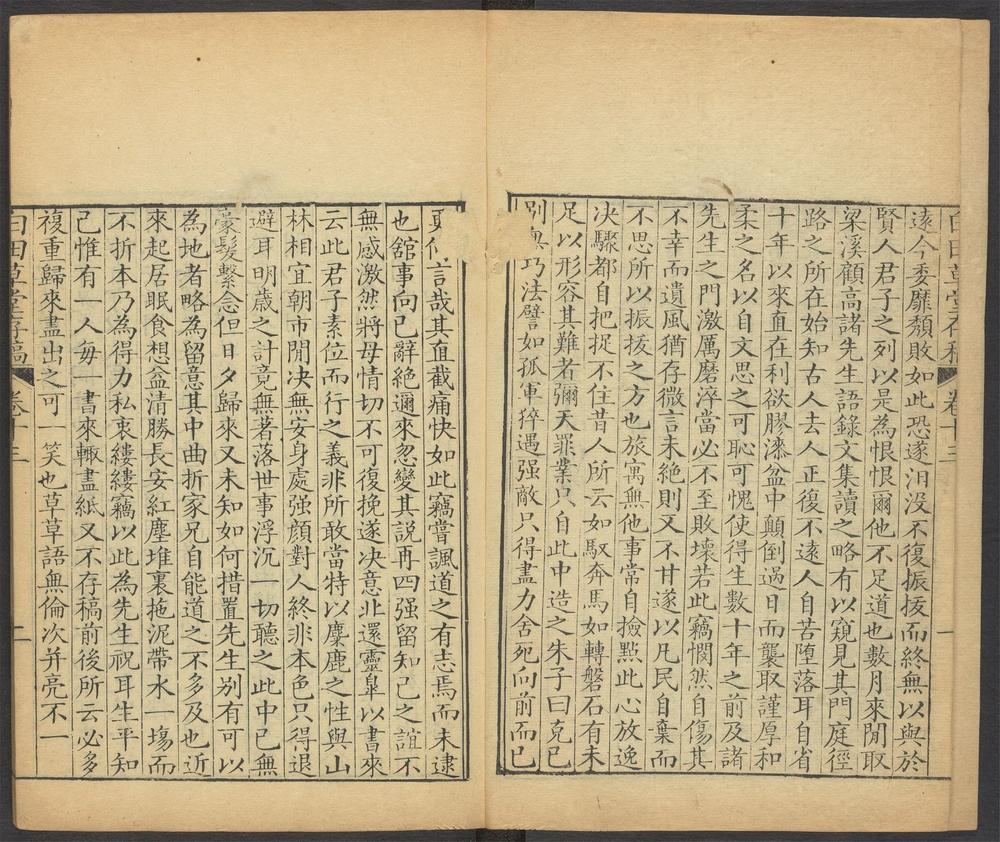 白田草堂存稿 卷十三 一
遠今委靡頹敗如此恐遂汨没不復振拔而終無以與於
賢人君子之列以是為恨恨爾他不足道也數月來閒取
梁溪顧高諸先生語錄文集讀之略有以窺見其門庭徑
路之所在始知古人去人正復不遠人自苦堕落耳自省
十年以來直在利欲膠漆盆中顛倒過日而襲取謹厚和
柔之名以自文思之可恥可愧使得生數十年之前及諸
先生之門激厲磨淬當必不至敗壞若此竊憫然自傷其
不幸而遺風猶存微言未絶則又不甘遂以凡民自棄而
不思所以振拔之方也旅寓無他事常自撿㸃此心放逸
决驟都自把捉不住昔人所云如馭奔馬如轉磐石有未
足以形容其難者彌天罪業只自此中造之朱子曰克已
别無巧法譬如孤軍猝遇强敵只得盡力舍死向前而已
更何言哉其直截痛快如此竊嘗諷道之有志焉而未逮
也舘事向已辭絶邇來忽變其説再四强留知己之誼不
無感激然將母情切不可復挽遂决意北還靈臯以書來
云此君子素位而行之義非所敢當特以麋鹿之性與山
林相宜朝市閙决無安身處强顔對人終非本色只得退
避耳明歲之計竟無著落世事浮沉一切聽之此中已無
豪髮繫念但日夕歸來又未知如何措置先生别有可以
為地者略為留意其中曲折家兄自能道之不多及也近
來起居眠食想益清勝長安紅塵堆裏拖泥帶水一塲而
不折本乃為得力私衷縷縷竊以此為先生祝耳生平知
己惟有一人每一書來輒盡紙又不存稿前後所云必多
複重歸來盡出之可一笑也草草語無倫次并亮不一
白田草堂存稿 卷十三 二